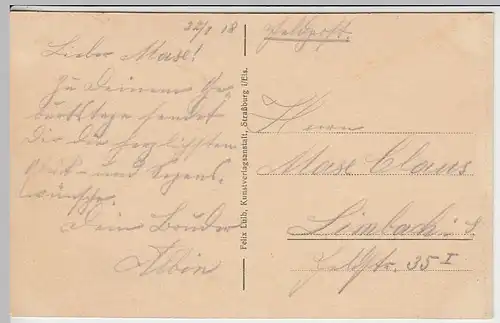 22/1 18
Feldpost.
Lieber Maxe!
Zu Deinem Ge-
burtstage sendet
Dir die herzlichsten
Glück- und Segens-
wünsche.
Dein Bruder
Albin
Felix Luib, Kunstverlagsanstalt, Straßburg i/Els.
Herrn
Maxe Claus
Limbach i. S.
Feldstr. 35 I